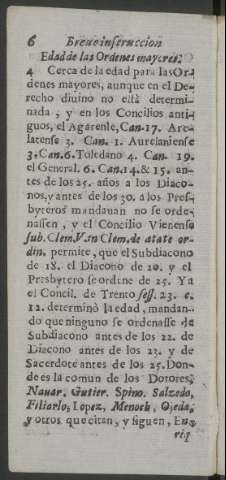 6 Breue instruccion
Edad de las Ordenes mayores.
4 Cerca de la edad para las Or-
denes mayores, aunque en el De-
recho diuino no està determi-
nada, y en los Concilios anti-
guos, el Agatense, Can. 17. Are-
latense 3. Can. 1. Aurelaniense
3. Can. 6. Toledano 4. Can. 19.
el General. 6. Can. 14. & 15. an-
tes de los 25. años a los Diaco-
nos, y antes de los 30. a los Pres-
byteros mandauan no se orde-
nassen, y el Concilio Vienense
sub. Clem. V. in Clem. de ætate or-
din. permite, que el Subdiacono
de 18. el Diacono de 20. y el
Presbytero se ordene de 25. Ya
el Concil. de Trento sess. 23. c.
12. determinò la edad, mandan-
do que ninguno se ordenasse de
Subdiacono antes de los 22. de
Diacono antes de los 23. y de
Sacerdote antes de los 25. Don-
de es la comun de los Dotores,
Nauar. Gutier. Spino. Salzedo,
Filiarlo, Lopez, Menoch, Ojeda,
y otros que citan, y siguen, En-
riq